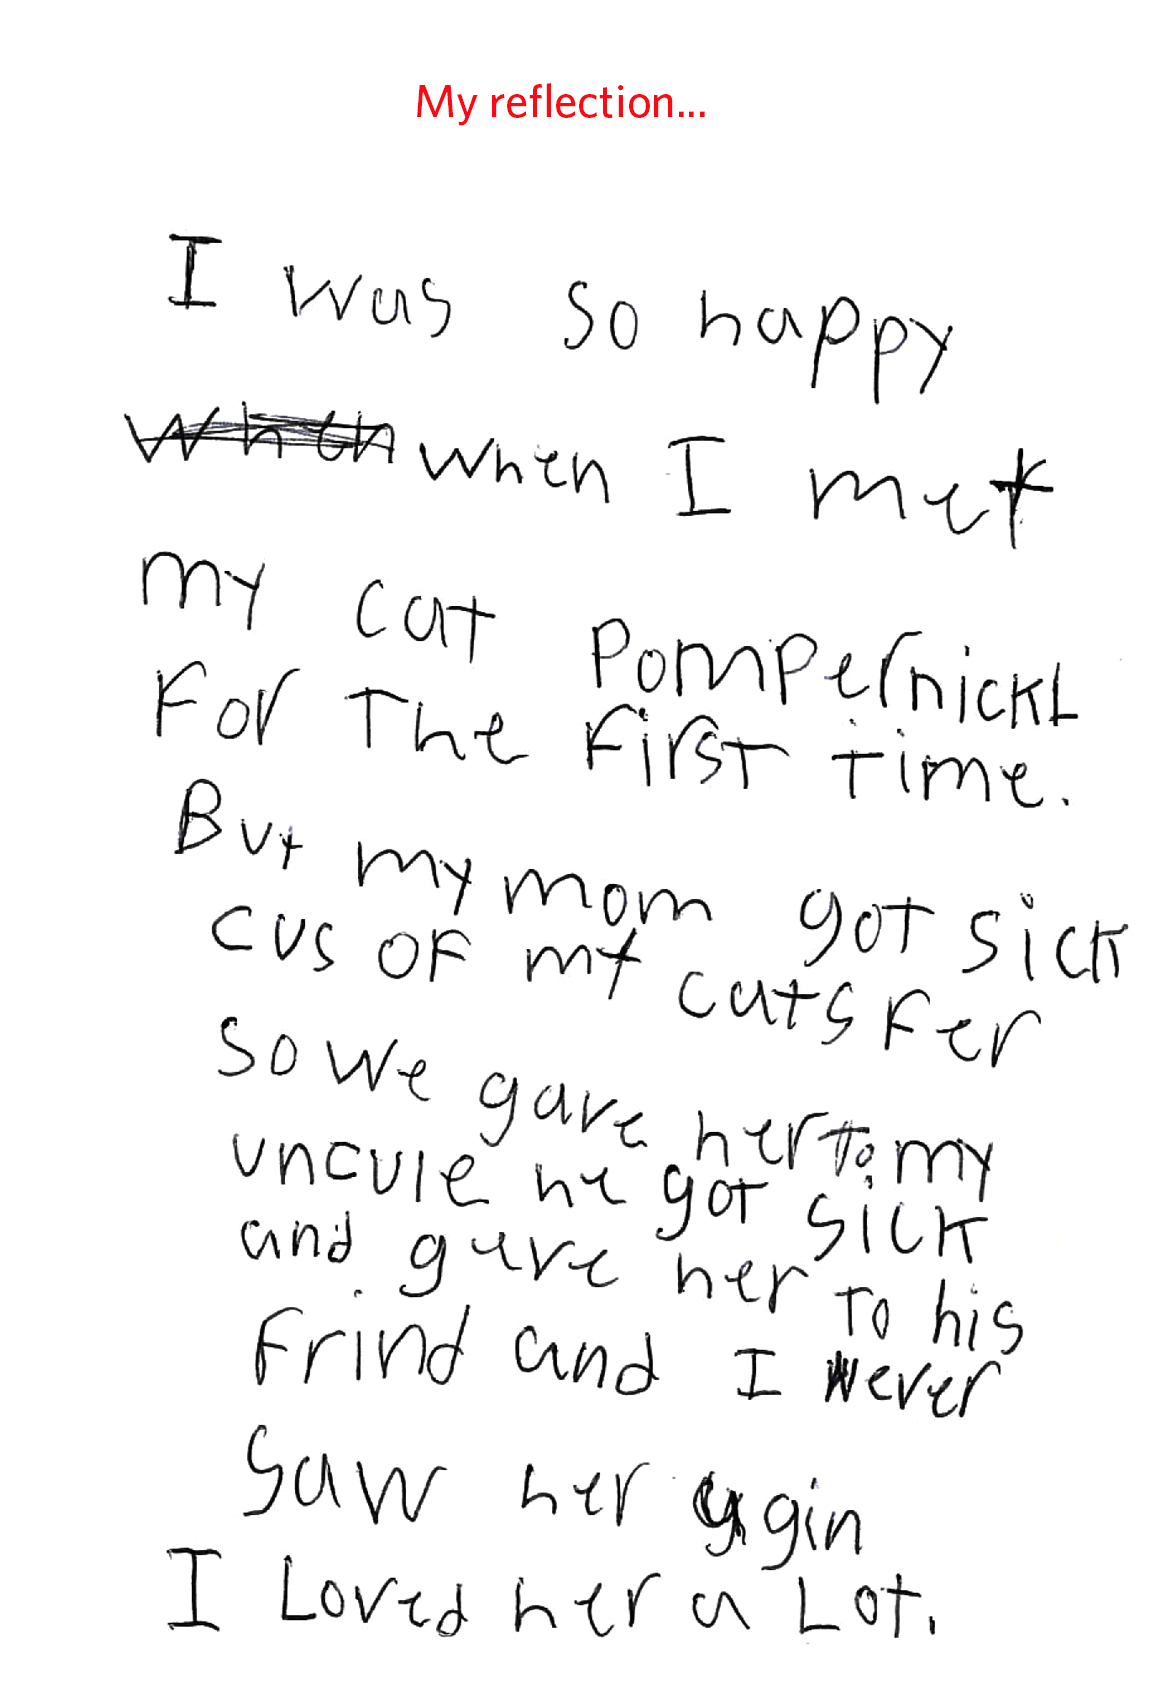 My reflection...
I was so happy
when when I met
my cat Pompernickl
For The First time.
But my mom got sick
cus of my cats fer
so we gave her to my
uncule he got sick
and gave her to his
Frind and I never
saw her agin
I Loved her a Lot.